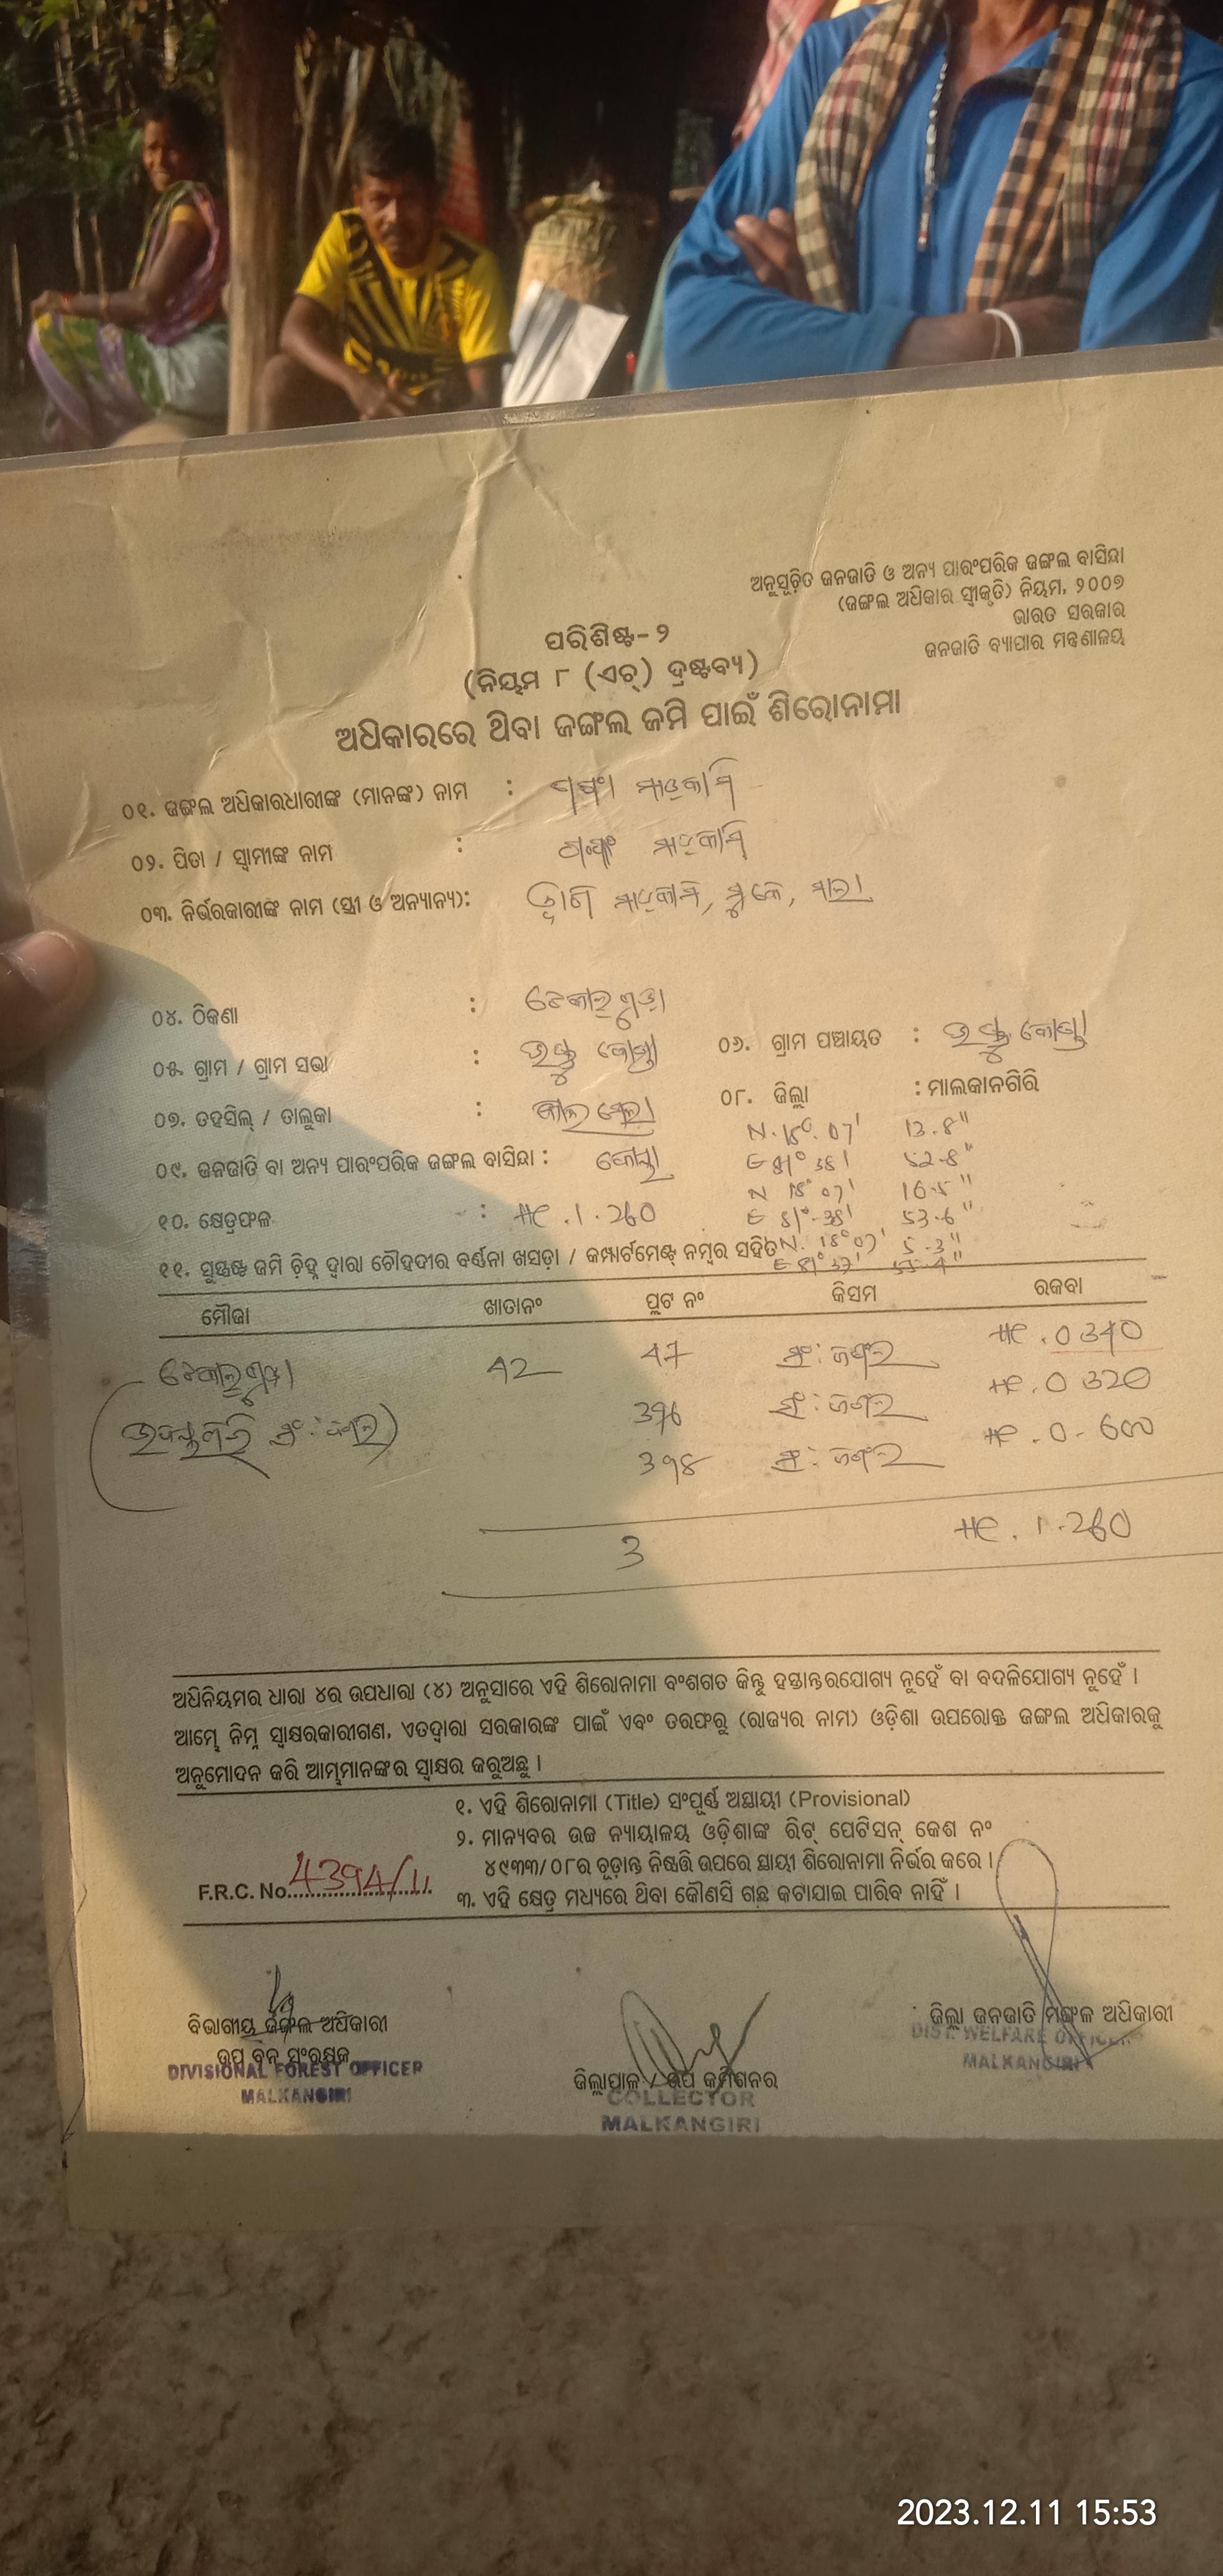 ଅନୁସୂଚିତ ଜନଜାତି ଓ ଅନ୍ୟ ପାରଂପରିକ ଜଙ୍ଗଲ ବାସିନ୍ଦା
(ଜଙ୍ଗଲ ଅଧିକାର ସ୍ୱୀକୃତି) ନିୟମ, ୨୦୦୭
ଭାରତ ସରକାର
ଜନଜାତି ବ୍ୟାପାର ମନ୍ତ୍ରଣାଳୟ
ପରିଶିଷ୍ଟ-୨
(ନିୟମ ୮ (ଏଚ୍) ଦ୍ରଷ୍ଟବ୍ୟ)
ଅଧିକାରରେ ଥିବା ଜଙ୍ଗଲ ଜମି ପାଇଁ ଶିରୋନାମା
୦୧. ଜଙ୍ଗଲ ଅଧିକାରଧାରୀଙ୍କ (ମାନଙ୍କ) ନାମ :
୦୨. ପିତା / ସ୍ୱାମୀଙ୍କ ନାମ :
୦୩. ନିର୍ଭରକାରୀଙ୍କ ନାମ (ସ୍ତ୍ରୀ ଓ ଅନ୍ୟାନ୍ୟ):
୦୪. ଠିକଣା :
୦୫. ଗ୍ରାମ / ଗ୍ରାମ ସଭା : ୦୬. ଗ୍ରାମ ପଞ୍ଚାୟତ :
୦୭. ତହସିଲ୍ / ତାଲୁକା : ୦୮. ଜିଲ୍ଲା : ମାଲକାନଗିରି
N. 18°. 07' 13.8"
୦୯. ଜନଜାତି ବା ଅନ୍ୟ ପାରଂପରିକ ଜଙ୍ଗଲ ବାସିନ୍ଦା : କୋୟା E 81° 38' 52.8"
N 18° 07' 10.5"
୧୦. କ୍ଷେତ୍ରଫଳ : HC. 1.260 E 81°-38' 53.6"
୧୧. ସୁସ୍ପଷ୍ଟ ଜମି ଚିହ୍ନ ଦ୍ୱାରା ଚୌହଦୀର ବର୍ଣ୍ଣନା ଖସଡ଼ା / କମ୍ପାର୍ଟମେଣ୍ଟ୍ ନମ୍ବର ସହିତ N. 18°07' 5.3"
E 81° 37'
ମୌଜା ଖାତାନଂ ପ୍ଲଟ ନଂ କିସମ ରକବା
42 47 ଜଙ୍ଗଲ HC. 0340
ଜଙ୍ଗଲ HC. 0 320
ଜଙ୍ଗଲ HC. 0-600
3 HC. 1.260
ଅଧିନିୟମର ଧାରା ୪ର ଉପଧାରା (୪) ଅନୁସାରେ ଏହି ଶିରୋନାମା ବଂଶଗତ କିନ୍ତୁ ହସ୍ତାନ୍ତରଯୋଗ୍ୟ ନୁହେଁ ବା ବଦଳିଯୋଗ୍ୟ ନୁହେଁ ।
ଆମ୍ଭେ ନିମ୍ନ ସ୍ୱାକ୍ଷରକାରୀଗଣ, ଏତଦ୍ଦ୍ୱାରା ସରକାରଙ୍କ ପାଇଁ ଏବଂ ତରଫରୁ (ରାଜ୍ୟର ନାମ) ଓଡ଼ିଶା ଉପରୋକ୍ତ ଜଙ୍ଗଲ ଅଧିକାରକୁ
ଅନୁମୋଦନ କରି ଆମ୍ଭମାନଙ୍କର ସ୍ୱାକ୍ଷର କରୁଅଛୁ ।
୧. ଏହି ଶିରୋନାମା (Title) ସଂପୂର୍ଣ୍ଣ ଅସ୍ଥାୟୀ (Provisional)
୨. ମାନ୍ୟବର ଉଚ୍ଚ ନ୍ୟାୟାଳୟ ଓଡ଼ିଶାଙ୍କ ରିଟ୍ ପେଟିସନ୍ କେଶ ନଂ
୪୯୩୩/୦୮ର ଚୂଡ଼ାନ୍ତ ନିଷ୍ପତ୍ତି ଉପରେ ସ୍ଥାୟୀ ଶିରୋନାମା ନିର୍ଭର କରେ ।
F.R.C. No. 4394/11
୩. ଏହି କ୍ଷେତ୍ର ମଧ୍ୟରେ ଥିବା କୌଣସି ଗଛ କଟାଯାଇ ପାରିବ ନାହିଁ ।
ବିଭାଗୀୟ ଜଙ୍ଗଲ ଅଧିକାରୀ
ଉପ ବନ ସଂରକ୍ଷକ
DIVISIONAL FOREST OFFICER
MALKANGIRI
ଜିଲ୍ଲାପାଳ / ଉପ କମିଶନର
COLLECTOR
MALKANGIRI
ଜିଲ୍ଲା ଜନଜାତି ମଙ୍ଗଳ ଅଧିକାରୀ
DIST. WELFARE OFFICER
MALKANGIRI
2023.12.11 15:53